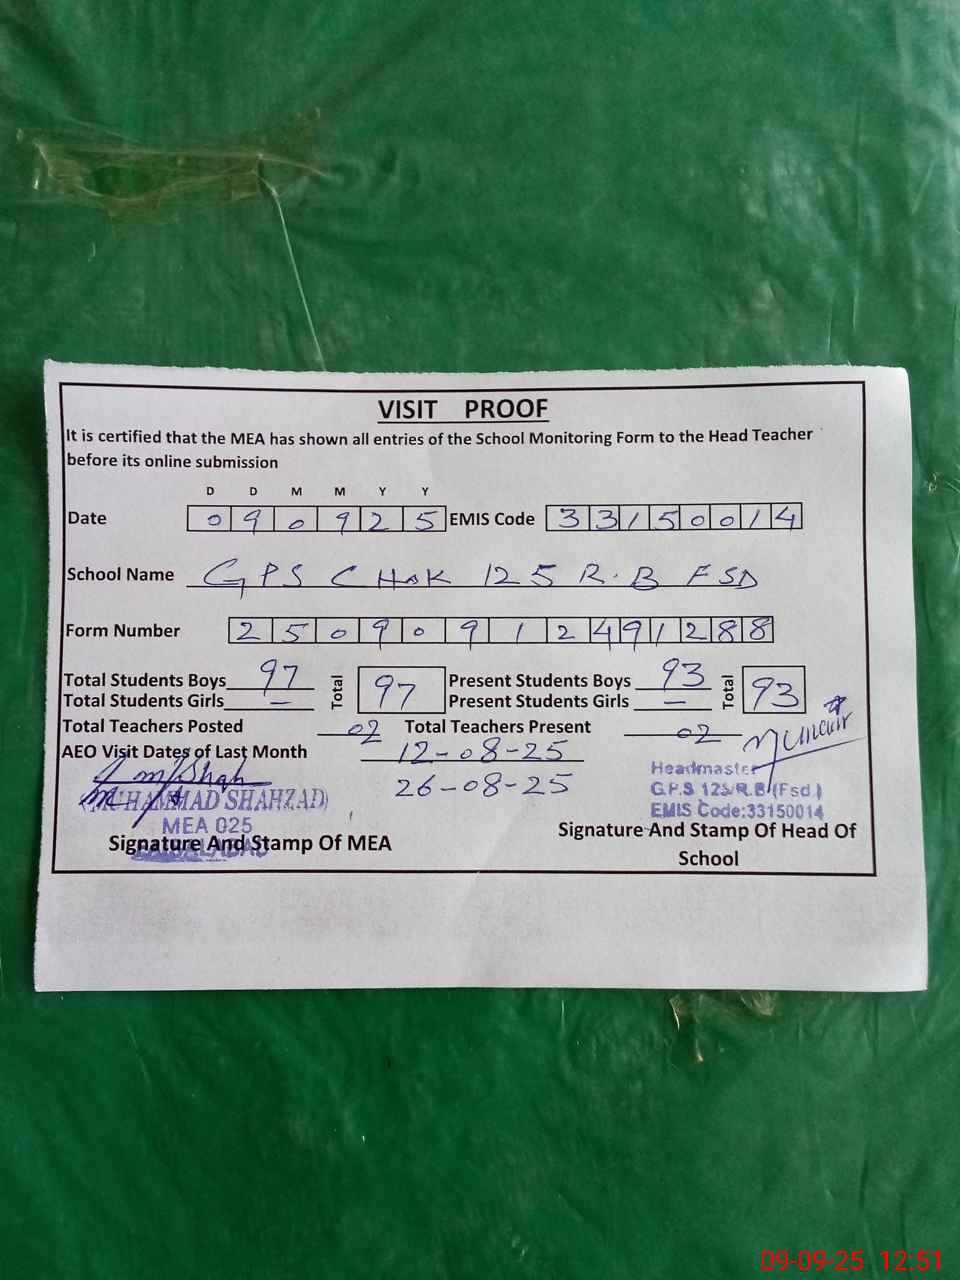 VISIT PROOF
It is certified that the MEA has shown all entries of the School Monitoring Form to the Head Teacher
before its online submission
D D M M Y Y
Date 0 9 0 9 2 5 EMIS Code 3 3 1 5 0 0 1 4
School Name GPS CHAK 125 R.B FSD
Form Number 2 5 0 9 0 9 1 2 4 9 1 2 8 8
Total Students Boys 97 Total 97 Present Students Boys 93 Total 93
Total Students Girls — Present Students Girls —
Total Teachers Posted 02 Total Teachers Present 02
AEO Visit Dates of Last Month 12-08-25
26-08-25
Headmaster
G.P.S 125/R.B (Fsd.)
EMIS Code:33150014
(MUHAMMAD SHAHZAD)
MEA 025
FAISALABAD
Signature And Stamp Of MEA
Signature And Stamp Of Head Of
School
09-09-25 12:51